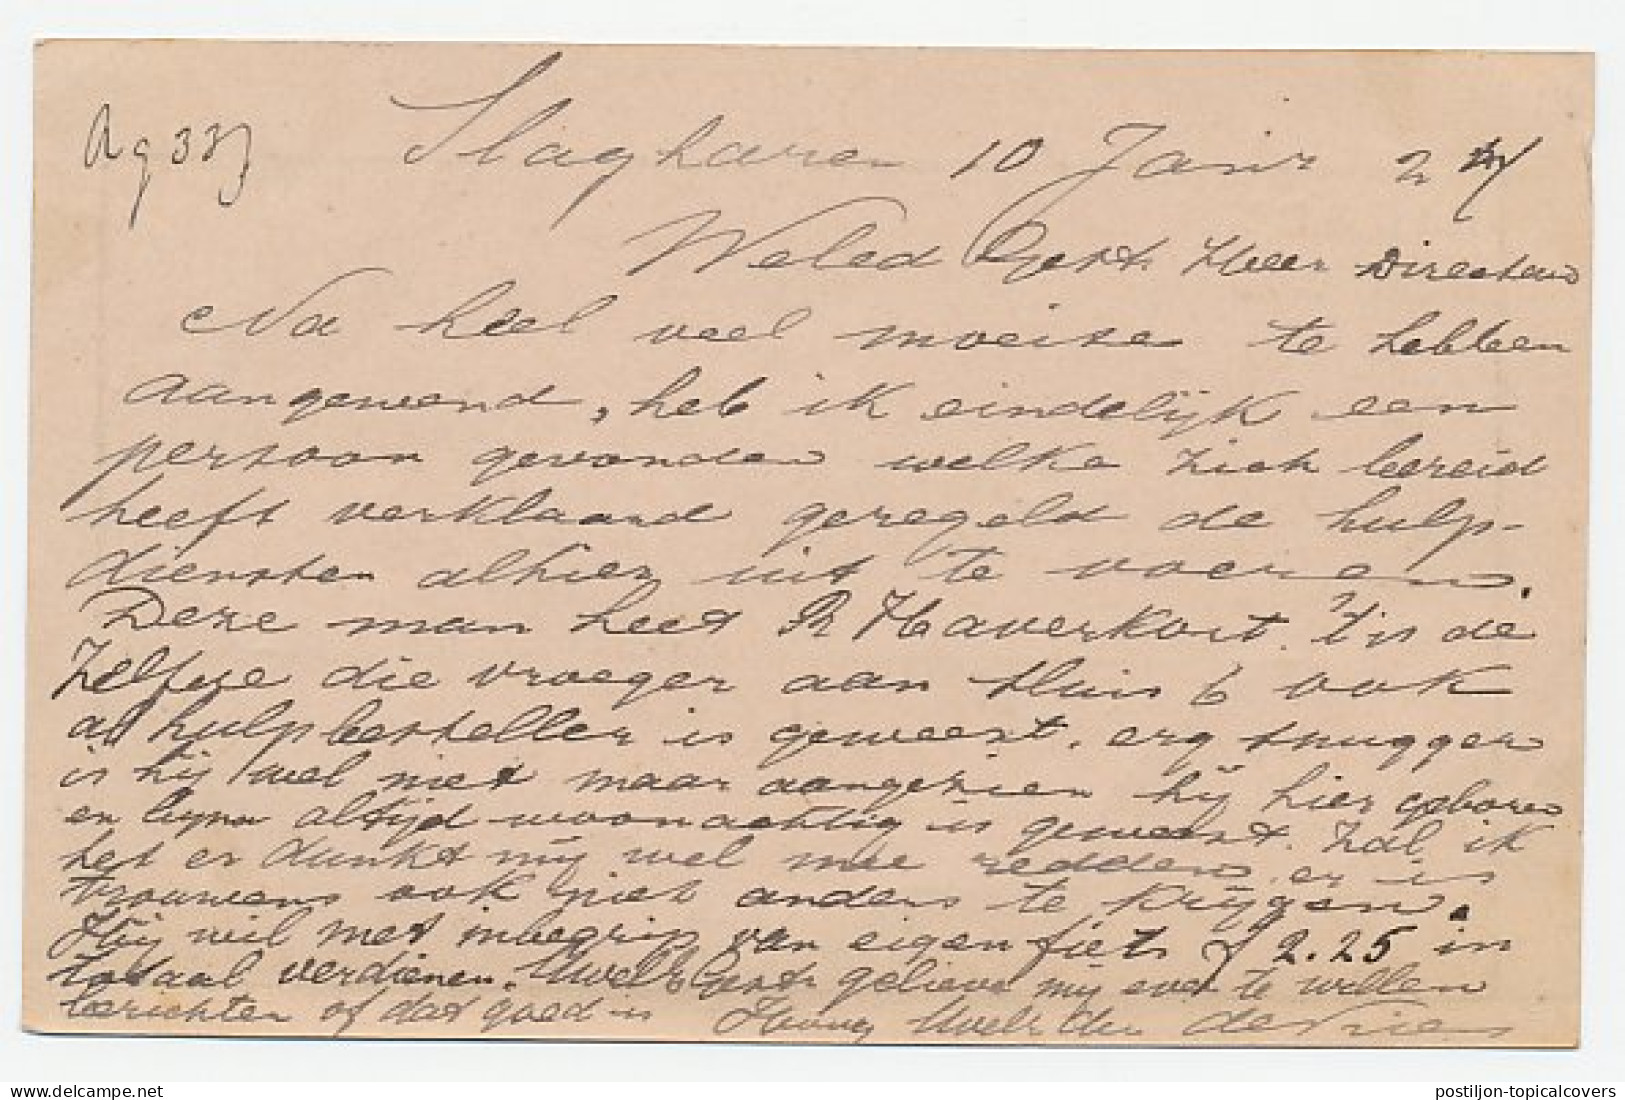 Slagharen 10 Janr 2
WelEd Gestr. Heer Directeur
Na heel veel moeite te hebben
aangewend, heb ik eindelijk een
persoon gevonden welke zich bereid
heeft verklaard geregeld de hulp-
diensten alhier uit te voeren.
Deze man heet R Haverkort. 't is de
zelfde die vroeger aan thuis ook
als hulpbesteller is geweest. erg snugger
is hij wel niet maar aangezien hij hier geboren
en bijna altijd woonachtig is geweest. Zal ik
het er dunkt mij wel mee redden, er is
trouwens ook niet anders te krijgen.
Hij wil met inbegrip van eigen fiets f 2.25 in
totaal verdienen. UwelEdGestr gelieve mij even te willen
berichten of dat goed is Hoog Uwelr Dr de Vries
postiljon-topicalcovers